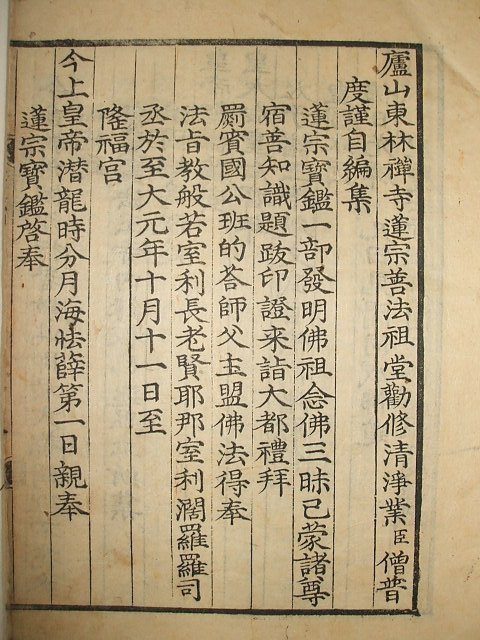 廬山東林禪寺蓮宗善法祖堂勸修清淨業臣僧普
度謹自編集
蓮宗寶鑑一部發明佛祖念佛三昧已蒙諸尊
宿善知識題跋印證来詣大都禮拜
罽賓國公班的荅師父主盟佛法得奉
法旨教般若室利長老賢耶那室利澗羅羅司
丞於至大元年十月十一日至
隆福宫
今上皇帝潜龍時分月海怯薛第一日親奉
蓮宗寶鑑啓奉